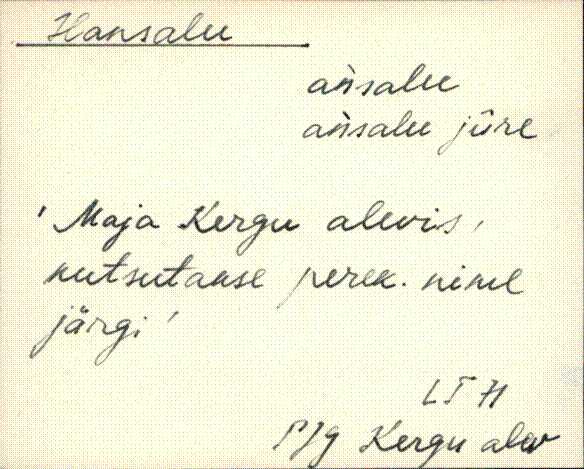 Hansalu
ańsalu
ańsalu jūre
'Maja Kergu alevis,
kutsutakse perek. nime
järgi'
LTH
PJg Kergu alev